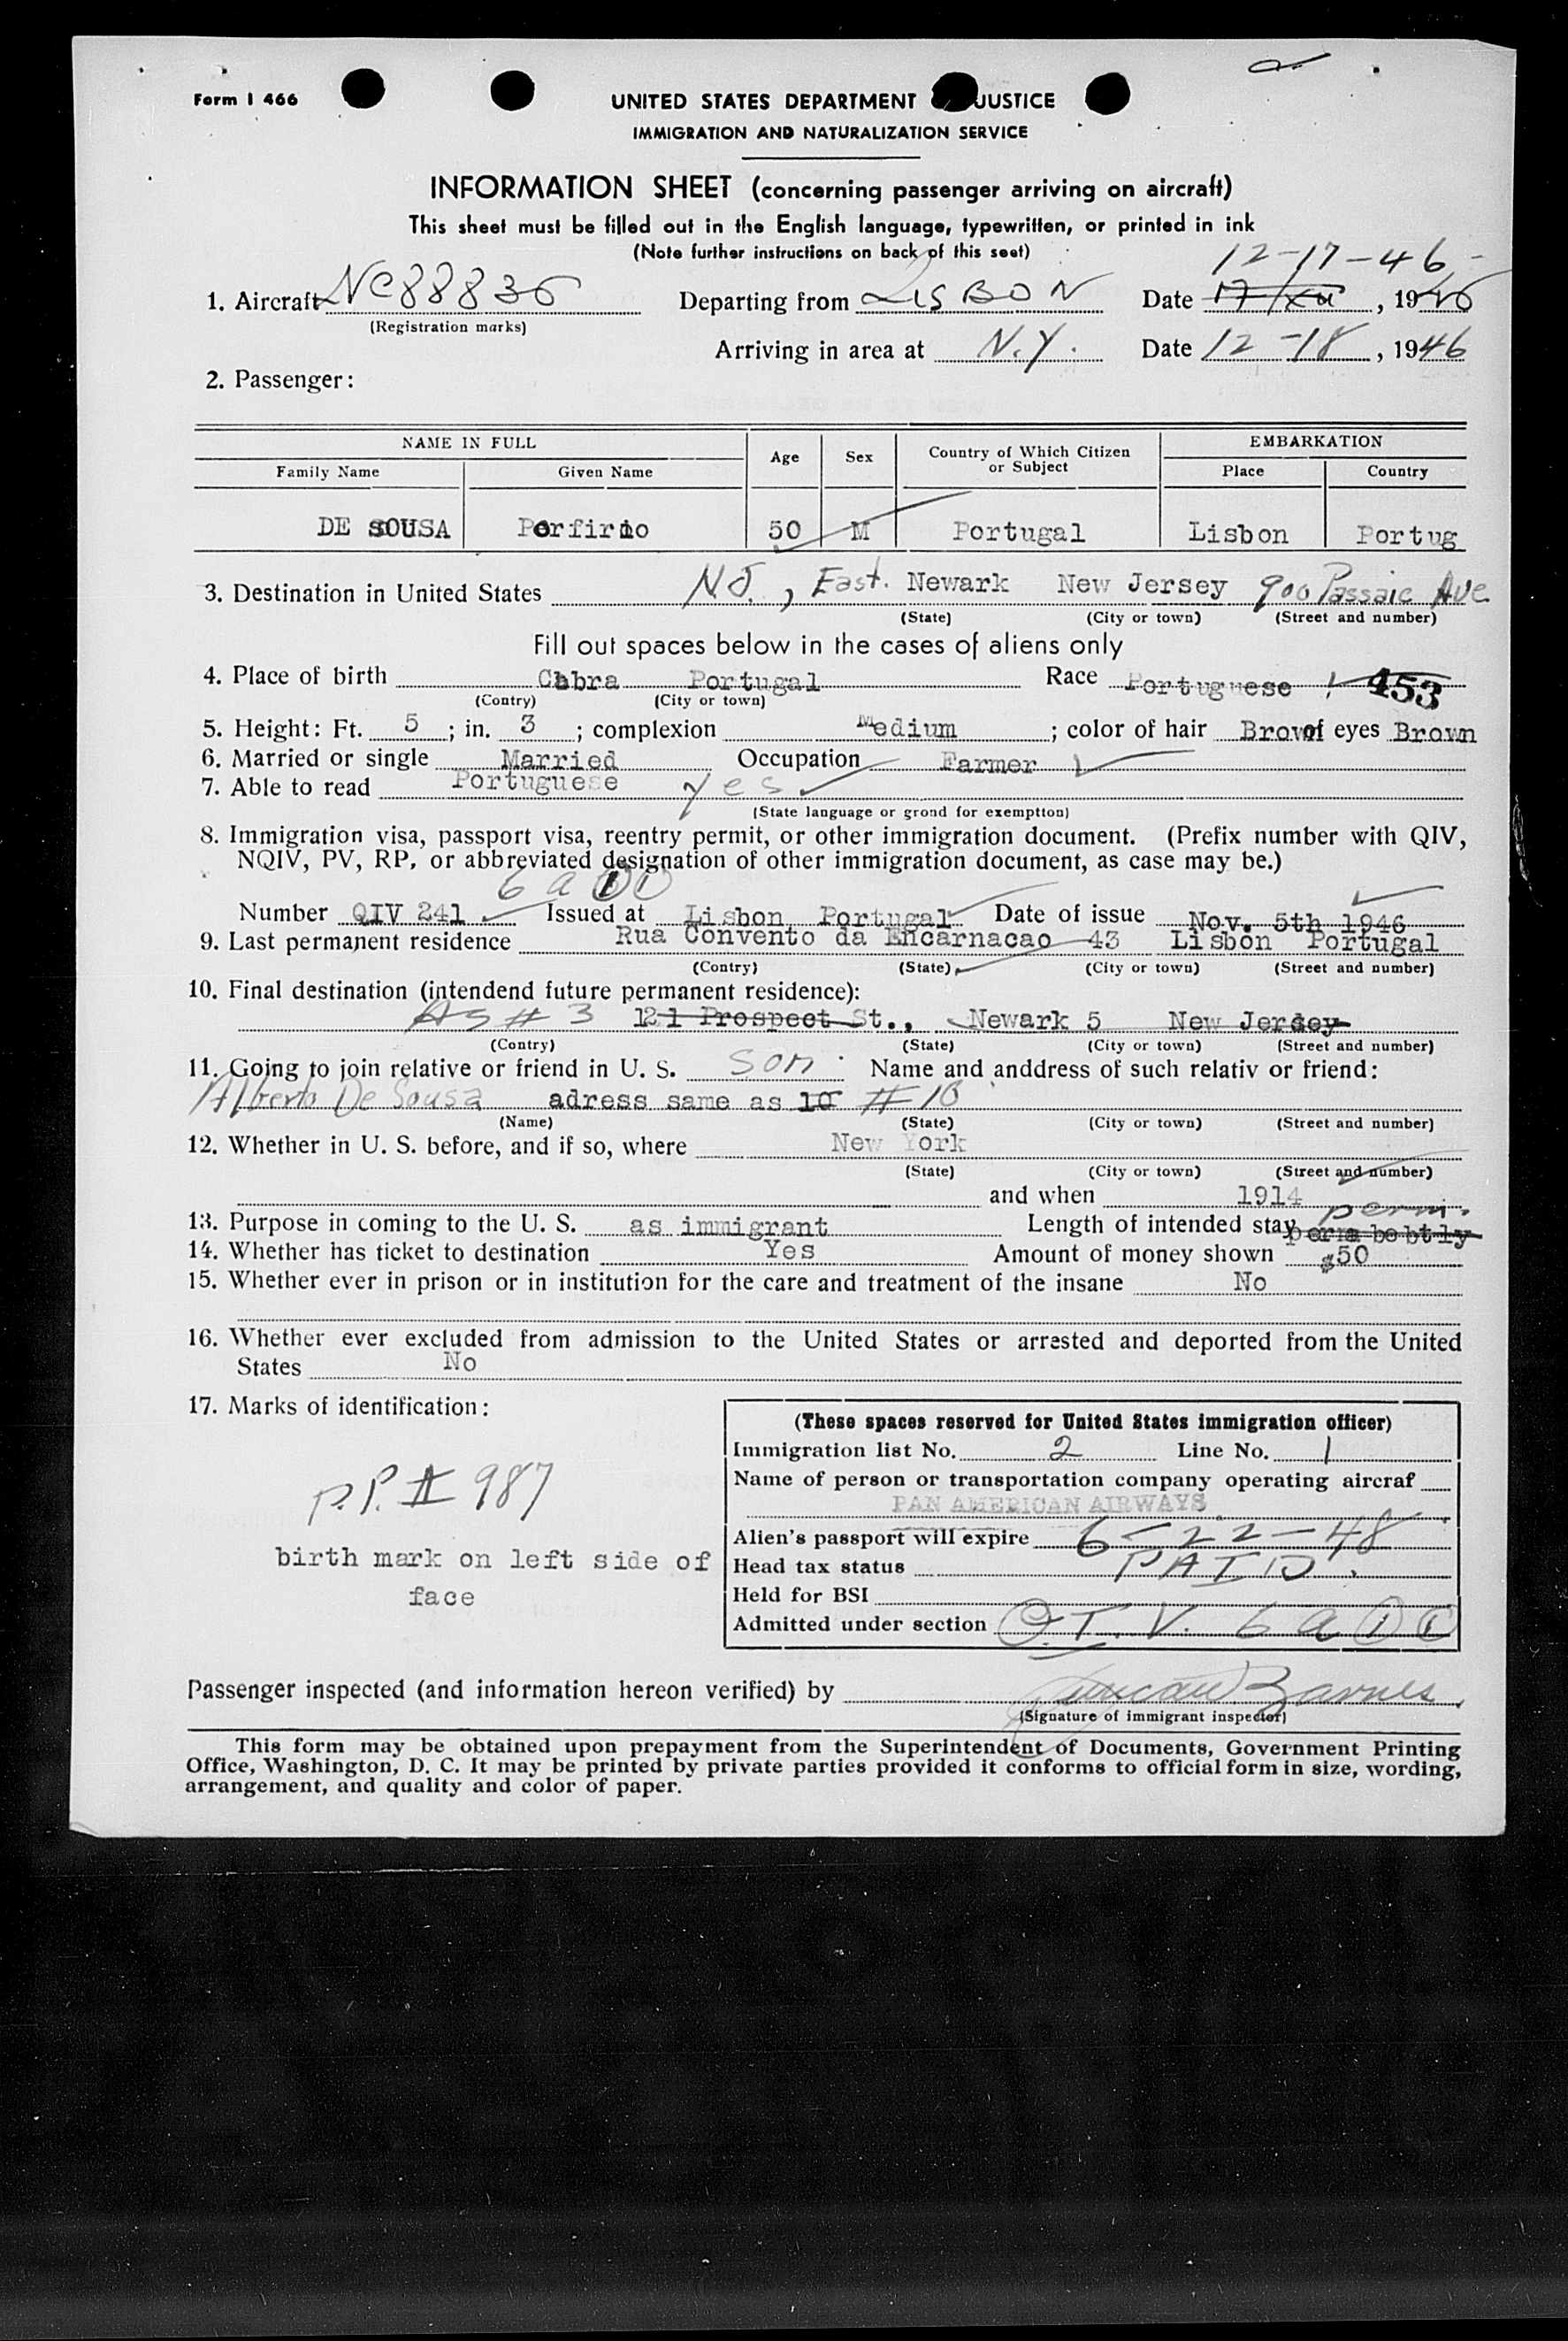 Form I 466
UNITED STATES DEPARTMENT JUSTICE
IMMIGRATION AND NATURALIZATION SERVICE
INFORMATION SHEET (concerning passenger arriving on aircraft)
This sheet must be filled out in the English language, typewritten, or printed in ink
(Note further instructions on back of this seet)
12-17-46
1. Aircraft NC88836 Departing from LISBON Date 17/XII, 1946
(Registration marks)
Arriving in area at N.Y. Date 12-18, 1946
2. Passenger:
NAME IN FULL Age Sex Country of Which Citizen or Subject EMBARKATION
Family Name Given Name Place Country
DE SOUSA Porfirio 50 M Portugal Lisbon Portug
3. Destination in United States N.J., East. Newark New Jersey 900 Passaic Ave
(State) (City or town) (Street and number)
Fill out spaces below in the cases of aliens only
4. Place of birth Cabra Portugal Race Portuguese 453
(Contry) (City or town)
5. Height: Ft. 5; in. 3; complexion Medium; color of hair Brown of eyes Brown
6. Married or single Married Occupation Farmer
7. Able to read Portuguese yes
(State language or grond for exemption)
8. Immigration visa, passport visa, reentry permit, or other immigration document. (Prefix number with QIV,
NQIV, PV, RP, or abbreviated designation of other immigration document, as case may be.)
6 a 1 1
Number QIV 241 Issued at Lisbon Portugal Date of issue Nov. 5th 1946
9. Last permanent residence Rua Convento da Encarnacao 43 Lisbon Portugal
(Contry) (State) (City or town) (Street and number)
10. Final destination (intendend future permanent residence):
AS # 3 121 Prospect St., Newark 5 New Jersey
(Contry) (State) (City or town) (Street and number)
11. Going to join relative or friend in U. S. son Name and anddress of such relativ or friend:
Alberto De Sousa adress same as 10 # 10
(Name) (State) (City or town) (Street and number)
12. Whether in U. S. before, and if so, where New York
(State) (City or town) (Street and number)
and when 1914
perm.
13. Purpose in coming to the U. S. as immigrant Length of intended stay
14. Whether has ticket to destination Yes Amount of money shown $50
15. Whether ever in prison or in institution for the care and treatment of the insane No
16. Whether ever excluded from admission to the United States or arrested and deported from the United
States No
17. Marks of identification:
P.P. # 987
birth mark on left side of
face
(These spaces reserved for United States immigration officer)
Immigration list No. 2 Line No. 1
Name of person or transportation company operating aircraf
PAN AMERICAN AIRWAYS
Alien's passport will expire 6-22-48
Head tax status PAID.
Held for BSI
Admitted under section Q.I.V. 6 a 1 1
Passenger inspected (and information hereon verified) by Duncan Barnes
(Signature of immigrant inspector)
This form may be obtained upon prepayment from the Superintendent of Documents, Government Printing
Office, Washington, D. C. It may be printed by private parties provided it conforms to official form in size, wording,
arrangement, and quality and color of paper.